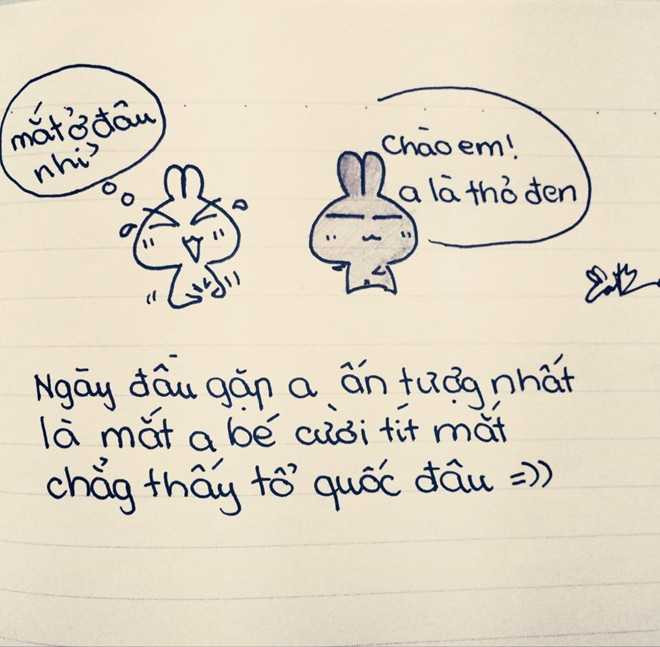 mắt ở đâu
nhỉ
Chào em!
a là thỏ đen
Ngày đầu gặp a ấn tượng nhất
là mắt a bé cười tít mắt
chẳg thấy tổ quốc đâu =))